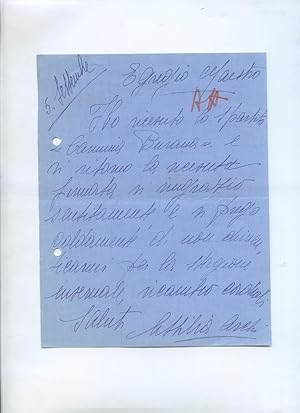 5. Settembre
Egregio Maestro
Ho ricevuto lo spartito
"Carmina Burana" e
vi ritorno la ricevuta
firmata vi ringrazio
sentitamente e vi prego
caldamente di non dimen
ticarmi per la stagione
invernale, ricambio cordiali
Saluti